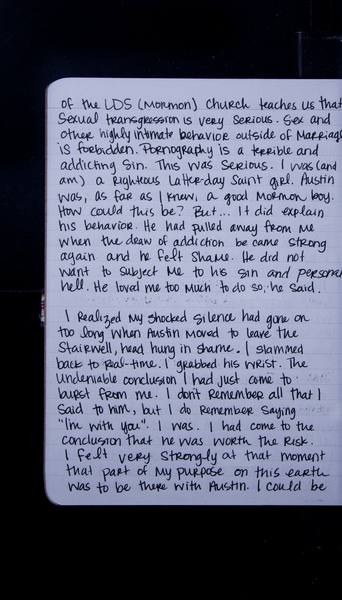 of the LDS (Mormon) Church teaches us that
Sexual transgression is very serious. Sex and
other highly intimate behavior outside of Marriage
is forbidden. Pornography is a terrible and
addicting sin. This was serious. I was (and
am) a righteous Latter-day Saint girl. Austin
was, as far as I knew, a good Mormon boy.
How could this be? But... It did explain
his behavior. He had pulled away from me
when the draw of addiction be came strong
again and he felt shame. He did not
want to subject me to his sin and personal
hell. He loved me too much to do so, he said.
I realized my shocked silence had gone on
too long when Austin moved to leave the
Stairwell, head hung in shame. I slammed
back to real-time. I grabbed his wrist. The
undeniable conclusion I had just come to
burst from me. I don't remember all that I
said to him, but I do remember saying
"I'm with you". I was. I had come to the
conclusion that he was worth the risk.
I felt very strongly at that moment
that part of my purpose on this earth
was to be there with Austin. I could be